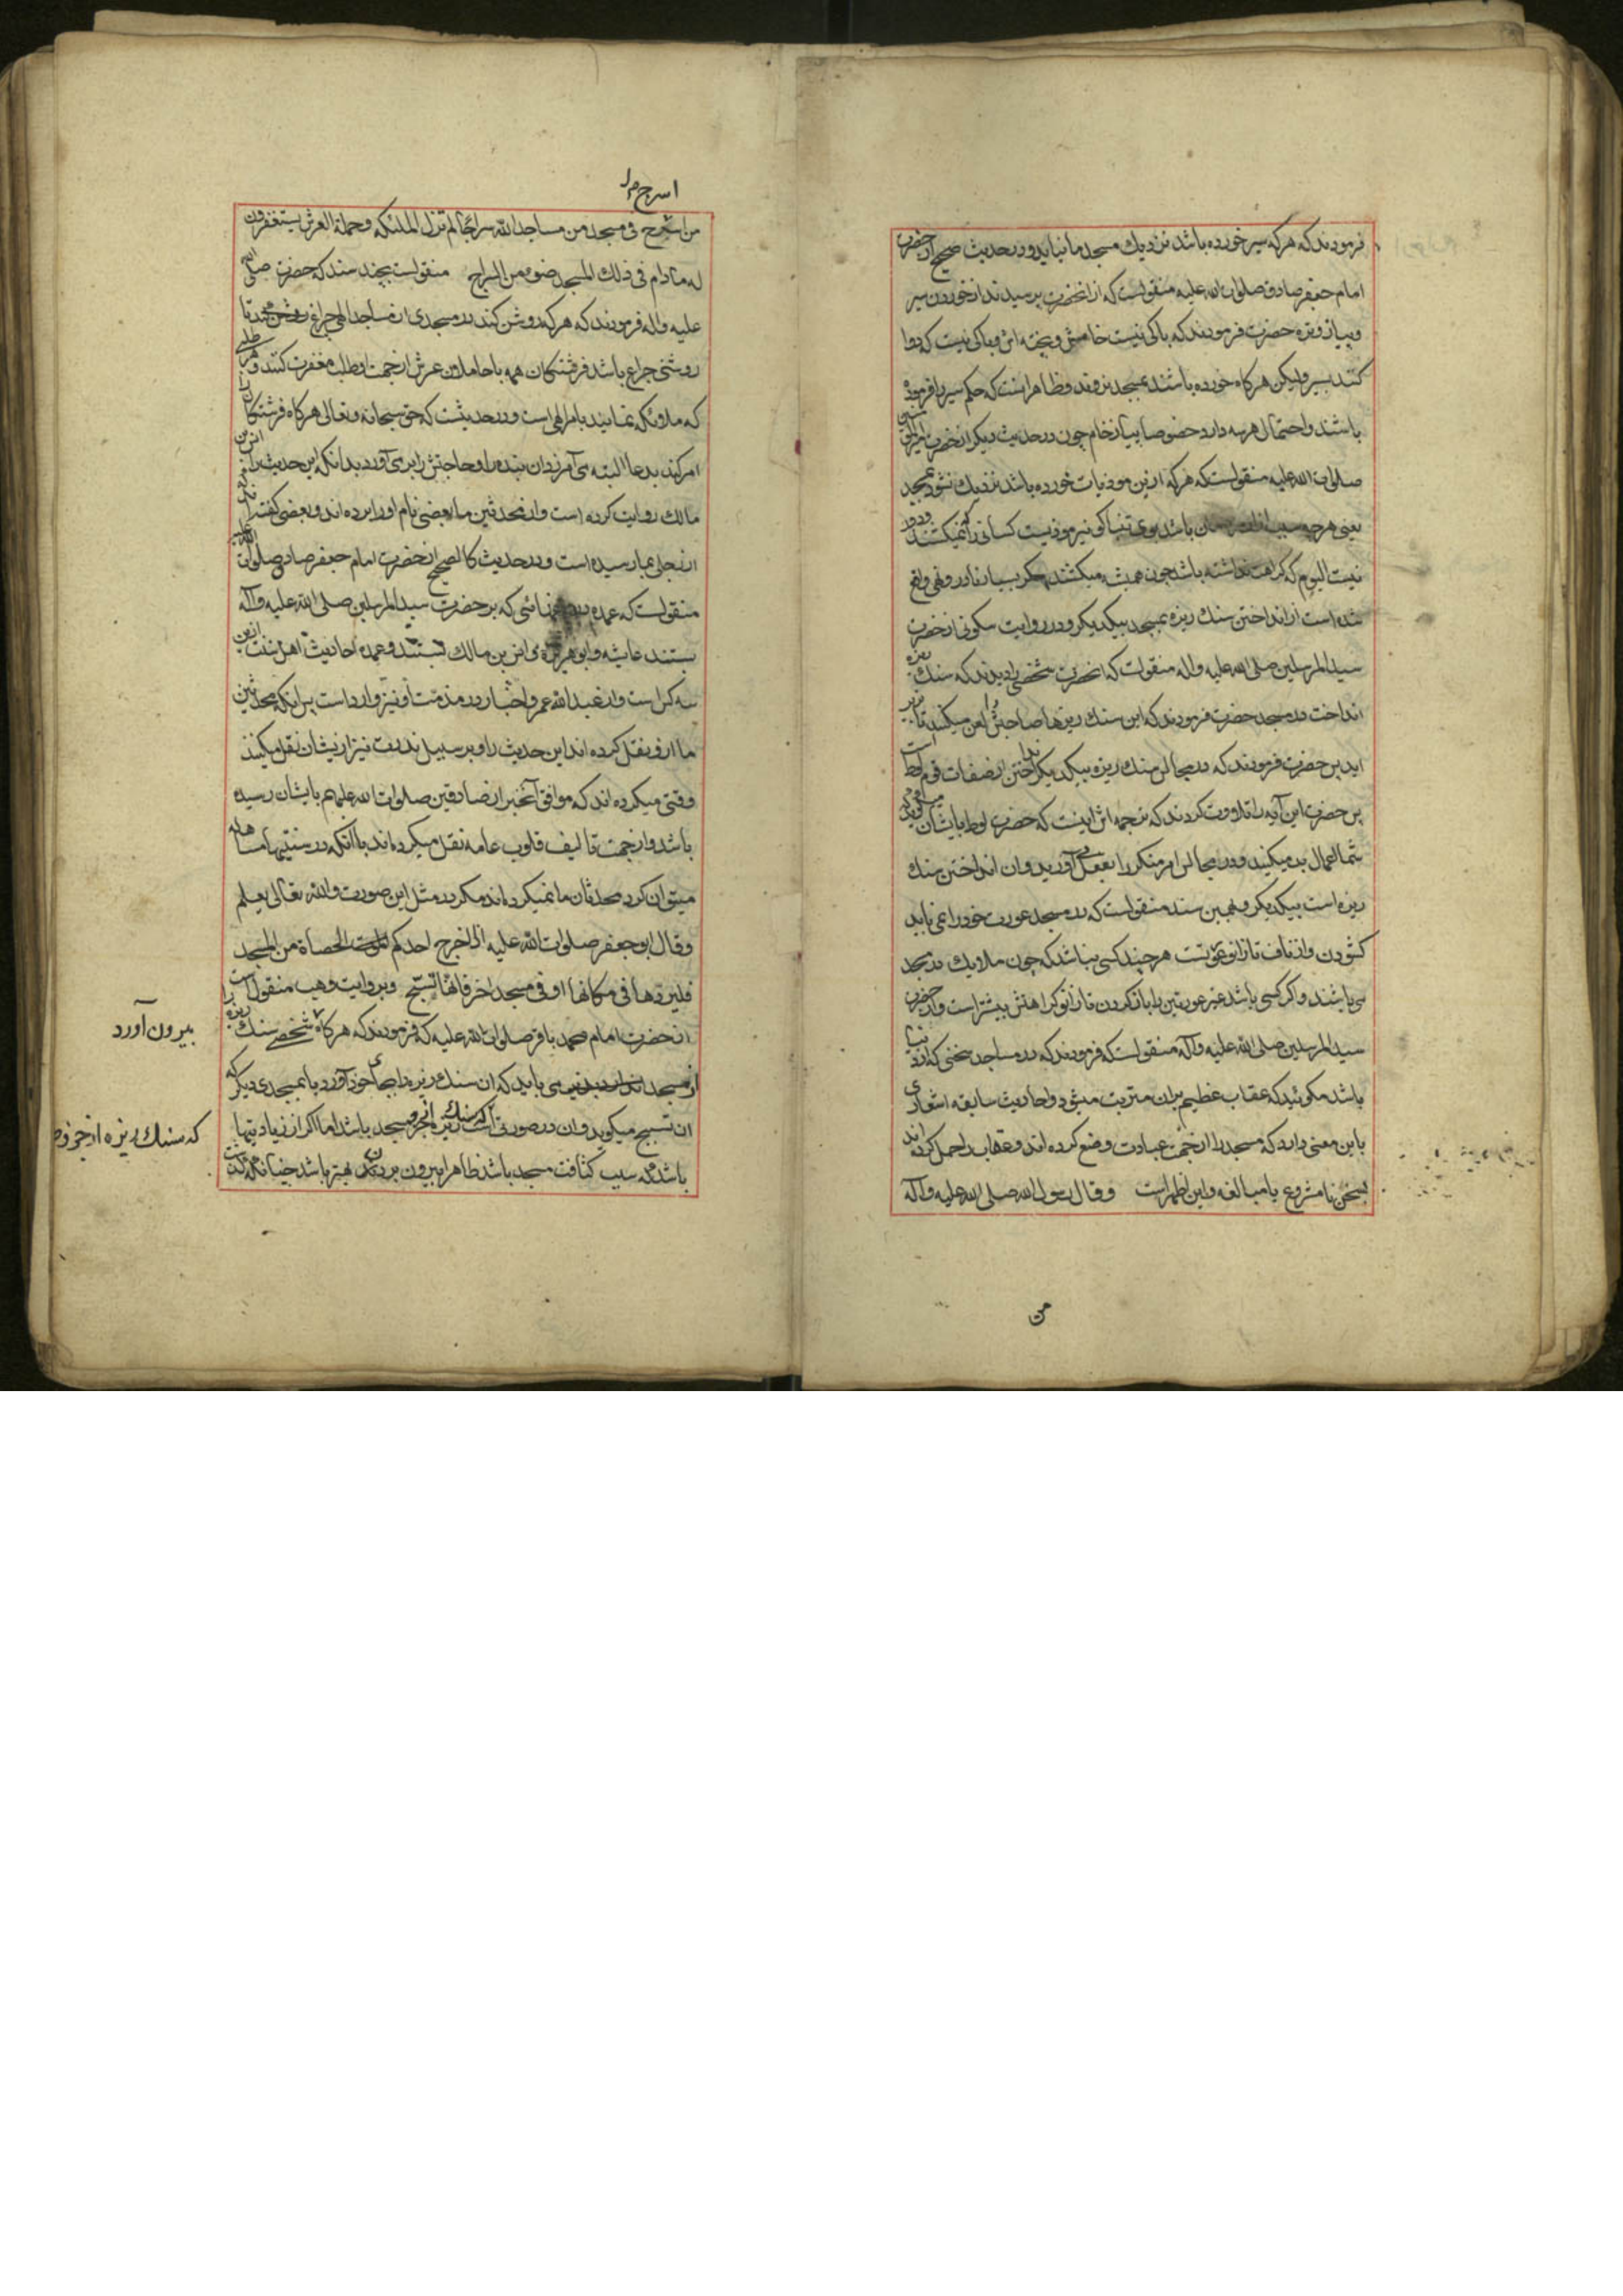 فرمودند که هر که سیر خورده باشد نزدیك مسجد ما نیاید و در حدیث صحیح از حضرت
امام جعفر صادق صلوات الله علیه منقولست که از انحضرت پرسیدند از خوردن سیر
و پیاز و تره حضرت فرمودند که باکی نیست خامش و پخته اش و باکی نیست که دوا
کنند بسیر ولیکن هر کاه خورده باشند بمسجد نروند و ظاهر اینست که حکم سیر را فرموده
باشند و احتمال هر سه دارد خصوصا پیاز خام چون در حدیث دیکر از حضرت امیرالمؤمنین
صلوات الله علیه منقولست که هر که ازین موذیات خورده باشد نزدیك نشود بمسجد
یعنی هر چه باشد بوی تنباکو نیز موذیست کسانی را که نمیکشند و دور
نیست الیوم که کراهت نداشته باشد چون همیشه میکشند مکر بسیار نادر و نهی واقع
شده است از انداختن سنك ریزه بمسجد بیکدیکر و در روایت سکونی از حضرت
سید المرسلین صلی الله علیه و اله منقولست که انحضرت شخصی را دیدند که سنك ریزه
انداخت در مسجد حضرت فرمودند که این سنك ریزها صاحبش را لعن میکنند تا بزیر
اید پس حضرت فرمودند که در مجالس سنك ریزه بیکدیکر انداختن از صفات قوم لوط است
پس حضرت این آیه را تلاوت کردند که ترجمه اش اینست که حضرت لوط بایشان میکوید که
شما اعمال بد میکنید و در مجالس امر منکر را بفعل می آورید و ان انداختن سنك
ریزه است بیکدیکر و بهمین سند منقولست که در مسجد عورت خود را نمی باید
کشودن و از ناف تا زانو عورتست هر چند کسی نباشد که چون ملایك در مسجد
می باشند و اکر کسی باشد غیر عورتین را باز کردن تا زانو کراهتش بیشتر است و از حضرت
سید المرسلین صلی الله علیه و آله منقولست که فرمودند که در مساجد سخنی که از دنیا
باشد مکوئید که عقاب عظیم بران مترتب میشود و احادیث سابقه اشعاری
باین معنی دارد که مسجد را از جهت عبادت وضع کرده اند و عقاب را حمل کرده اند
بسخن نا مشروع یا مبالغه و این اظهر است و قال رسول الله صلی الله علیه و اله
من
اسرج
من اسرج فی مسجد من مساجد الله سراجا لم تزل الملئکه و حملة العرش یستغفرون
له ما دام فی ذلك المسجد ضوء من السراج منقولست بچند سند که حضرت صلی الله
علیه و اله فرمودند که هر که روشن کند در مسجدی از مساجد الهی چراغی تا
روشنی چراغ باشد فرشتکان همه با حاملان عرش از جهت او طلب مغفرت کنند و هر طلبی
که ملائکه نمایند بامر الهی است و در حدیثست که حق سبحانه و تعالی هر کاه فرشتکان را
امر کند بدعا البته می آمرزد ان بنده را و حاجتش را بر می آورد بدانکه این حدیث را انس بن
مالك روایت کرده است و از محدثین ما بعضی نام او را برده اند و بعضی کفته اند که
منقولست که عمده که بر حضرت سید المرسلین صلی الله علیه و آله
بستند عایشه و ابو هریره و انس بن مالك بستند و عمده احادیث اهل سنت ازین
سه کس است و از عبد الله عمر و اخبار در مذمت او نیز وارد است پس انکه محدثین
ما ازو نقل کرده اند این حدیث را و بر سبیل ندرت نیز ازیشان نقل میکنند
وقتی میکرده اند که موافق آنخبر از صادقین صلوات الله علیهم بایشان رسیده
باشد و از جهت تالیف قلوب عامه نقل میکرده اند با انکه در سنتیها مساهله
میتوان کرد محدثان ما نمیکرده اند مکر در مثل این صورت و الله تعالی یعلم
و قال ابو جعفر صلوات الله علیه اذا اخرج احدکم الحصاة من المسجد
فلیردها فی مکانها او فی مسجد اخر فانها تسبّح و بروایت وهب منقول است
از حضرت امام محمد باقر صلوات الله علیه که فرمودند که هر کاه شخصی سنك ریزه را
بیرون آورد
از مسجد می باید که ان سنك ریزه را بجای خود آورد یا بمسجدی دیکر که
ان تسبیح میکوید و ان در صورتی است که سنك ریزه از جزو مسجد باشد اما اکر از زیادتیها
که سنك ریزه از جزو
باشد که سبب کثافت مسجد باشد ظاهرا بیرون بردن بهتر باشد چنانکه کذشت